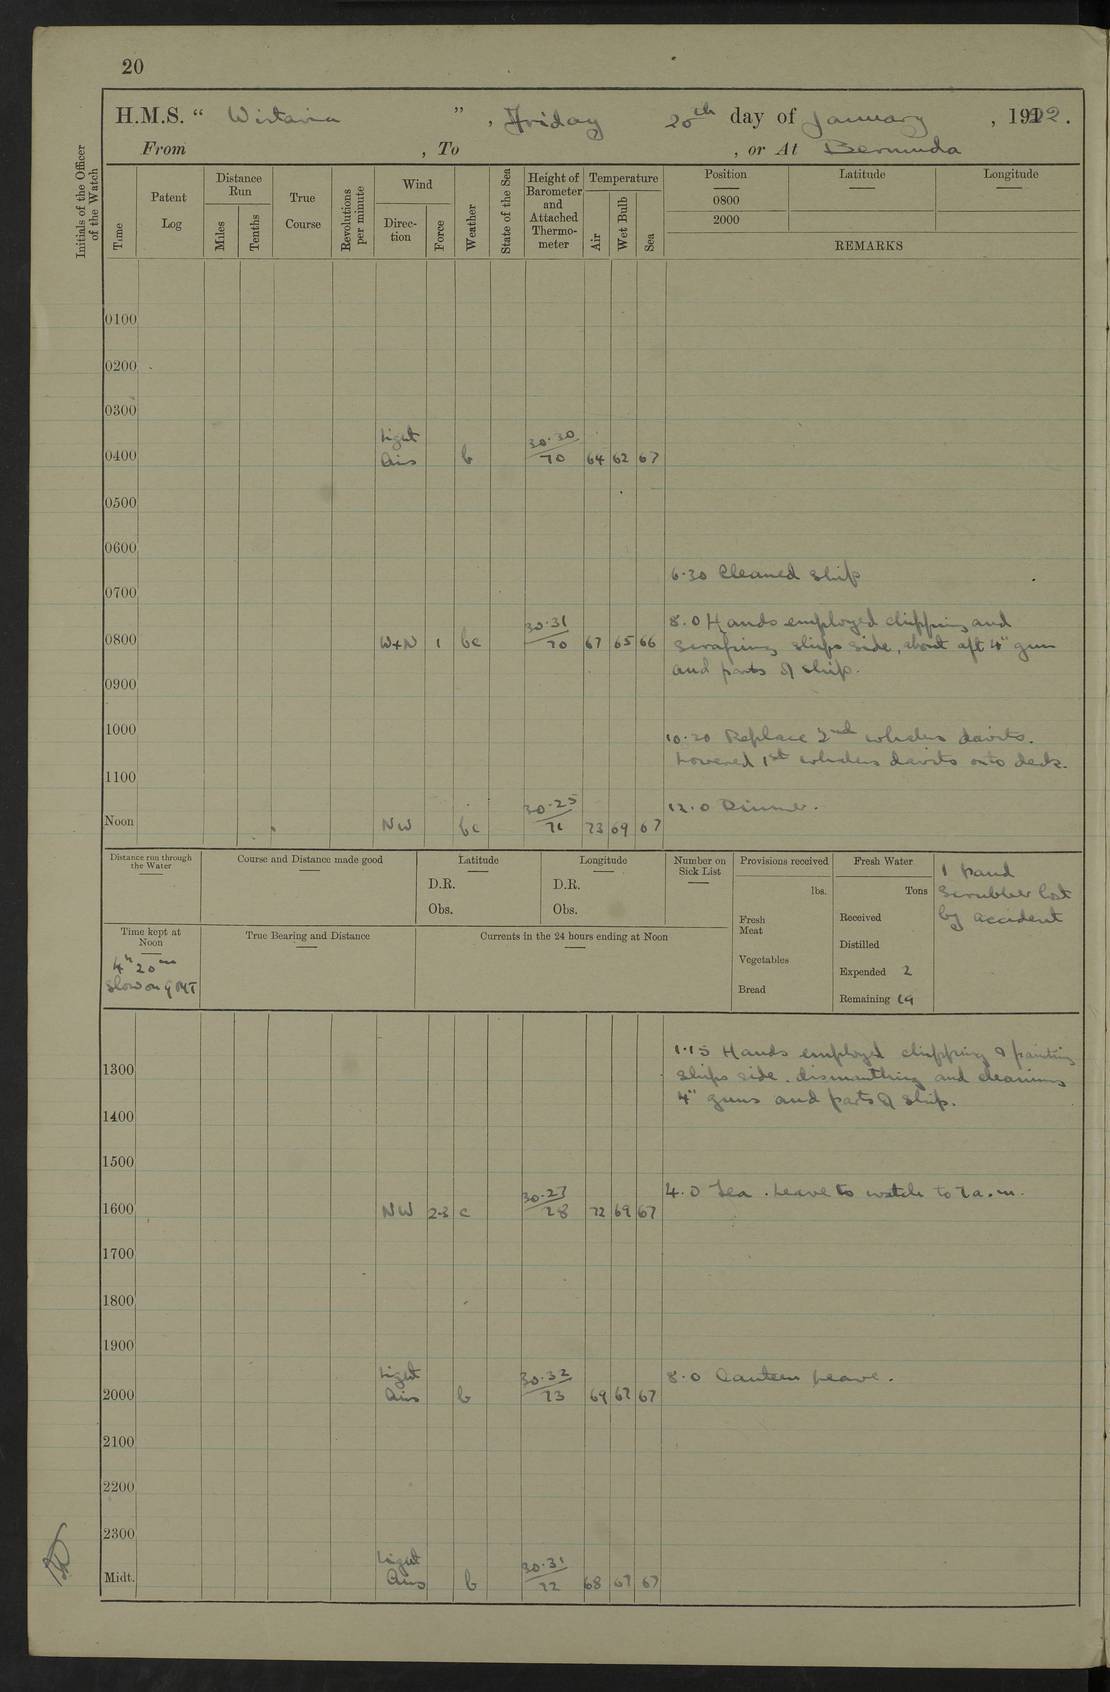 20
H.M.S. “ Wistaria ” , Friday 20th day of January , 1922 .
From , To , or At Bermuda
Initials of the Officer
of the Watch
Time
Patent
Log
Distance
Run
Miles
Tenths
True
Course
Revolutions
per minute
Wind
Direc-
tion
Force
Weather
State of the Sea
Height of
Barometer
and
Attached
Thermo-
meter
Temperature
Air
Wet Bulb
Sea
Position Latitude Longitude
0800
2000
REMARKS
0100
0200
0300
Light 30.30
0400 Airs b 70 64 62 67
0500
0600
6.30 Cleaned ship
0700
30.31 8.0 Hands employed chipping and
0800 W+N 1 bc 70 67 65 66 scraping ships side, about aft 4" gun
and parts of ship.
0900
1000 10.20 Replace 2nd whalers davits.
Lowered 1st whalers davits onto deck.
1100
30.25 12.0 Dinner.
Noon NW bc 71 73 69 67
Distance run through
the Water
Course and Distance made good
Latitude
D.R.
Obs.
Longitude
D.R.
Obs.
Number on
Sick List
Provisions received
lbs.
Fresh
Meat
Vegetables
Bread
Fresh Water
Tons
Received
Distilled
Expended 2
Remaining 19
1 hand
scrubber lost
by accident
Time kept at
Noon
4h 20m
slow on GMT
True Bearing and Distance
Currents in the 24 hours ending at Noon
1.15 Hands employed chipping & painting
1300 ships side. dismantling and cleaning
4" guns and parts of ship.
1400
1500
30.27 4.0 Tea. Leave to watch to 7 a.m.
1600 NW 2-3 c 28 72 69 67
1700
1800
1900
Light 30.32 8.0 Canteen Leave.
2000 Airs b 73 69 67 67
2100
2200
2300
Light 30.31
Midt. Airs b 72 68 67 67